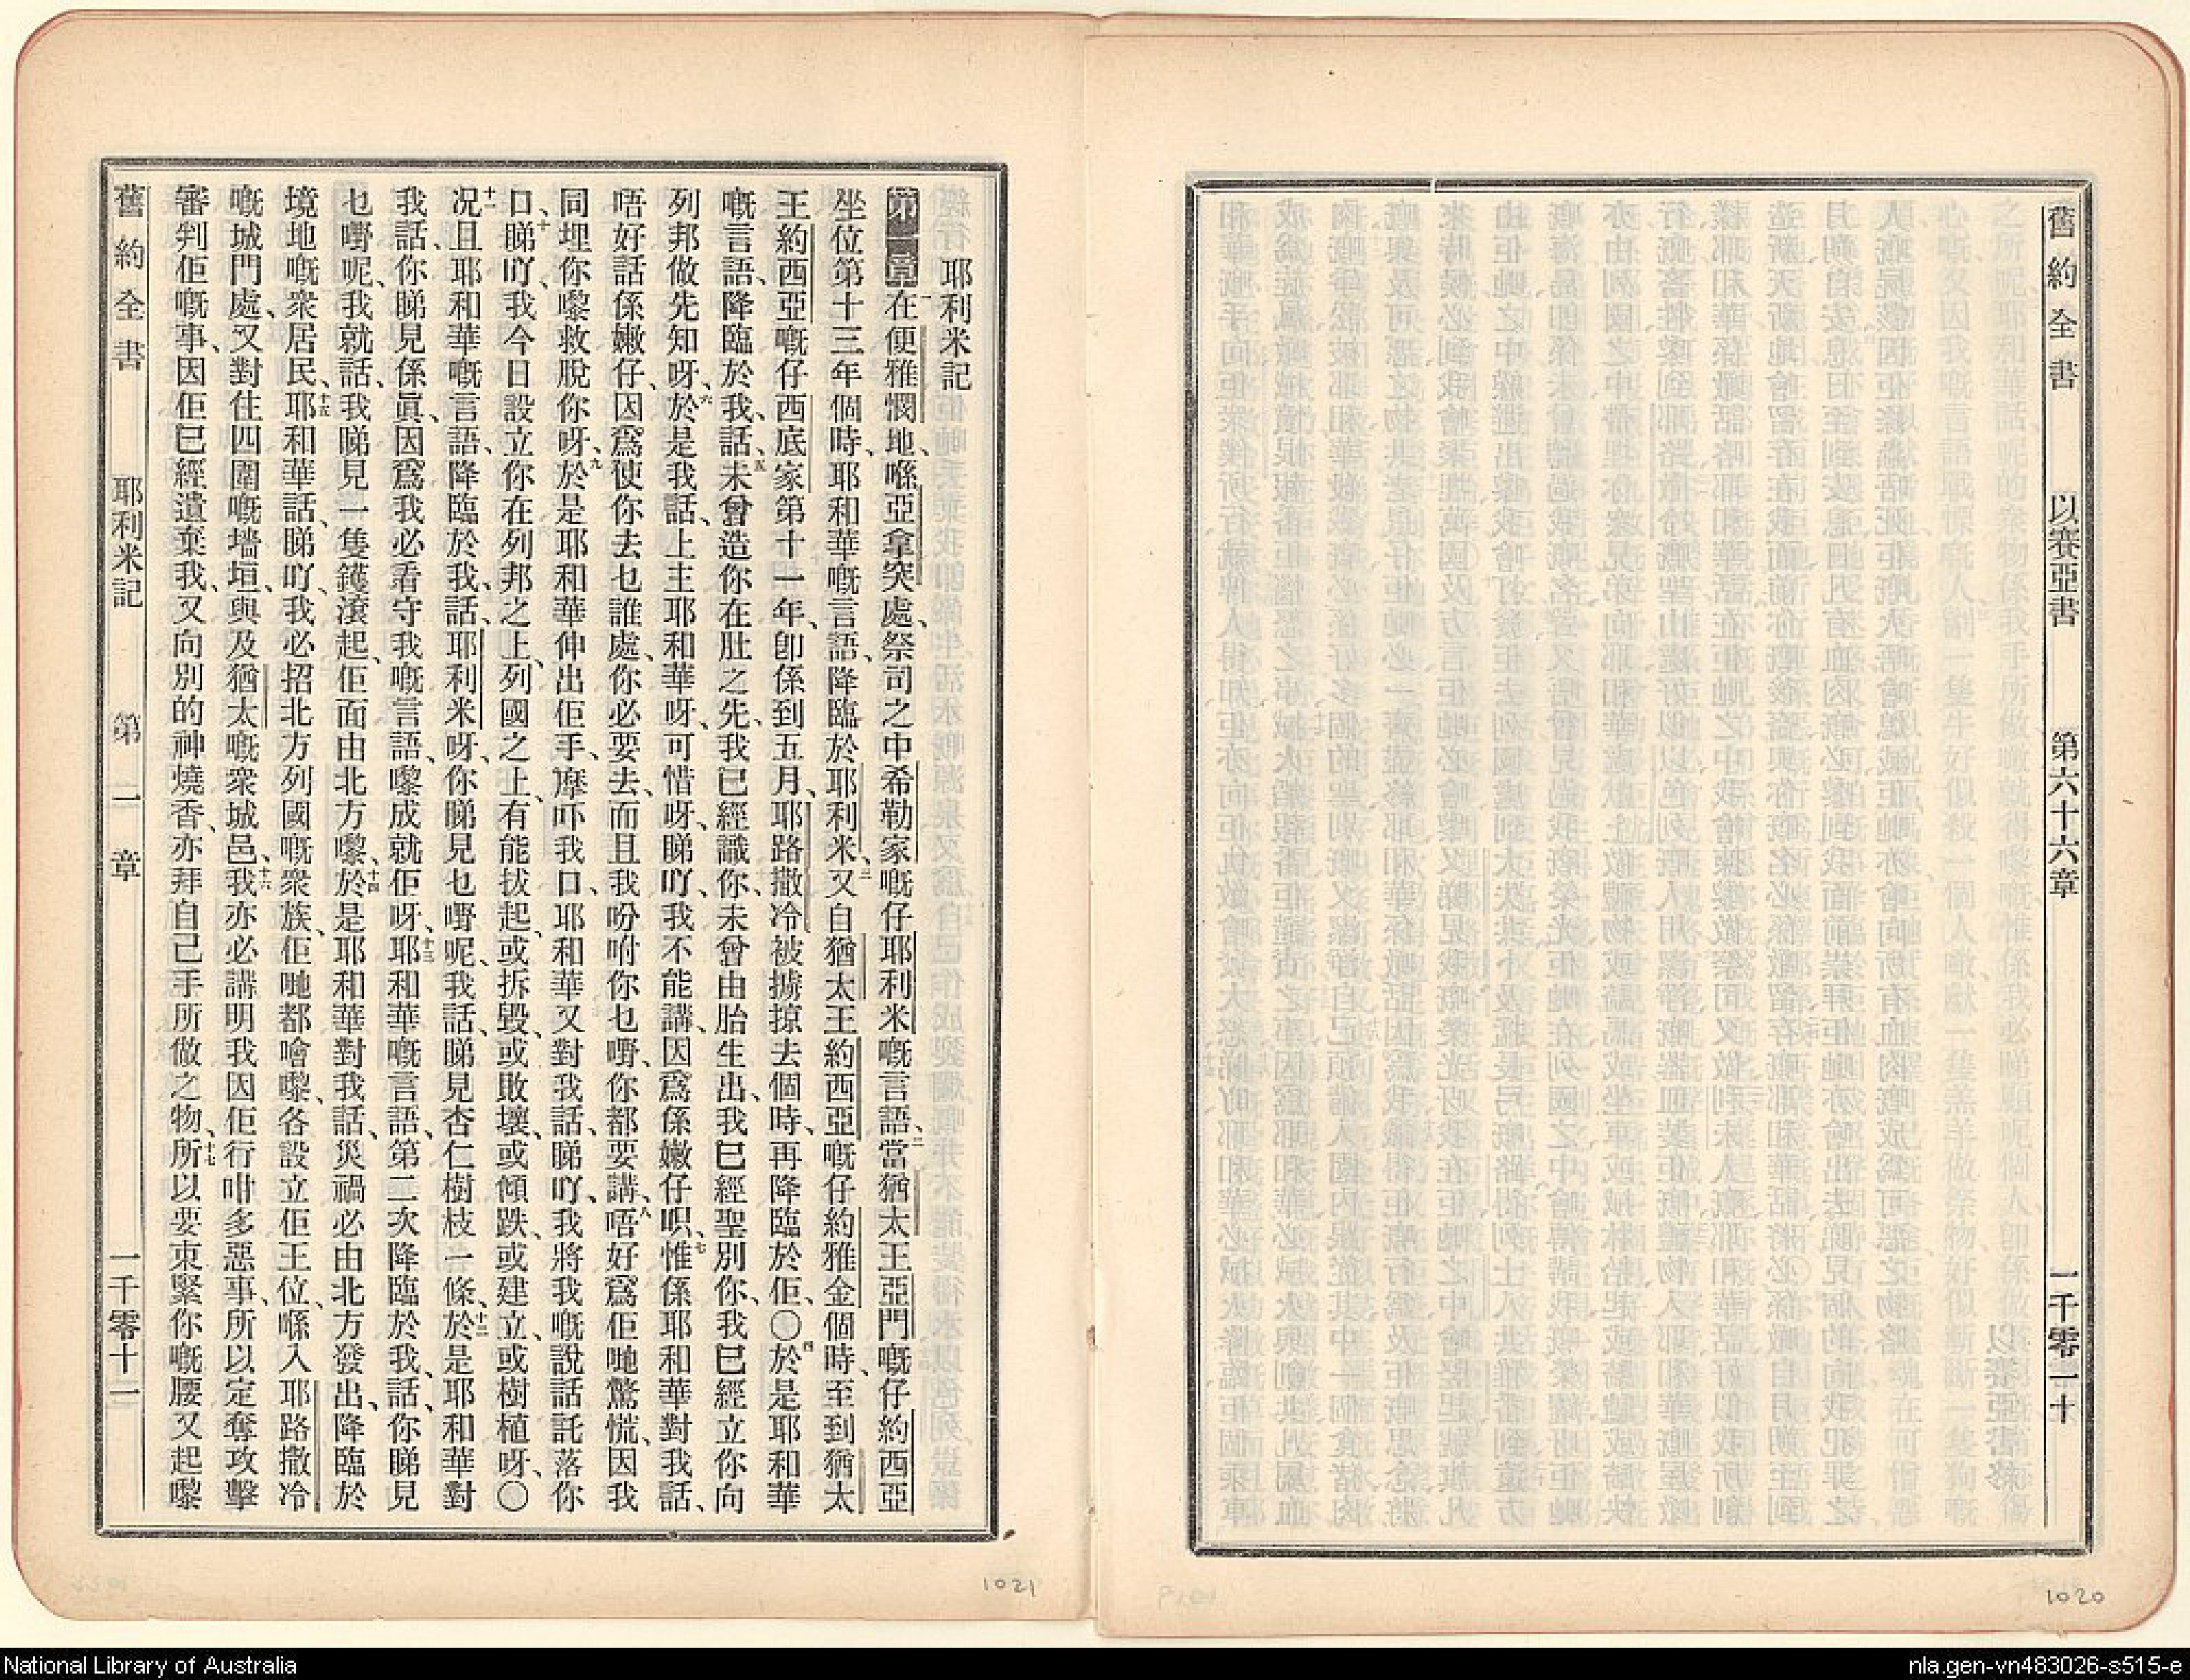 舊約全書 以賽亞書 第六十六章 一千零一十
耶利米記
第一章 一在便雅憫地、喺亞拿突處、祭司之中希勒家嘅仔耶利米嘅言語、二當猶太王亞門嘅仔約西亞
坐位第十三年個時、耶和華嘅言語、降臨於耶利米、三又自猶太王約西亞嘅仔約雅金個時、至到猶太
王約西亞嘅仔西底家第十一年、卽係到五月、耶路撒冷被擄掠去個時、再降臨於佢、〇四於是耶和華
嘅言語、降臨於我、話、五未曾造你在肚之先、我已經識你、未曾由胎生出、我已經聖別你、我已經立你向
列邦做先知呀、六於是我話、上主耶和華呀、可惜呀、睇吖、我不能講、因爲係嫩仔呮、七惟係耶和華對我話、
唔好話係嫩仔、因爲使你去乜誰處、你必要去、而且我吩咐你乜嘢、你都要講、八唔好爲佢哋驚慌、因我
同埋你嚟救脫你呀、九於是耶和華伸出佢手、摩吓我口、耶和華又對我話、睇吖、我將我嘅說話託落你
口、十睇吖、我今日設立你在列邦之上、列國之上、有能拔起、或拆毀、或敗壞、或傾跌、或建立、或樹植呀、〇
十一况且耶和華嘅言語、降臨於我、話、耶利米呀、你睇見乜嘢呢、我話、睇見杏仁樹枝一條、十二於是耶和華對
我話、你睇見係眞、因爲我必看守我嘅言語、嚟成就佢呀、十三耶和華嘅言語、第二次降臨於我、話、你睇見
乜嘢呢、我就話、我睇見一隻鑊滾起、佢面由北方嚟、十四於是耶和華對我話、災禍必由北方發出、降臨於
境地嘅衆居民、十五耶和華話、睇吖、我必招北方列國嘅衆族、佢哋都嚟、各設立佢王位、喺入耶路撒冷
嘅城門處、又對住四圍嘅墻垣、與及猶太嘅衆城邑、十六我亦必講明我因佢行咁多惡事、所以定奪攻擊
審判佢嘅事、因佢已經遺棄我、又向別的神燒香、亦拜自己手所做之物、十七所以要束緊你嘅腰又起嚟
舊約全書 耶利米記 第一章 一千零十一
1021
1020
National Library of Australia
nla.gen-vn483026-s515-e